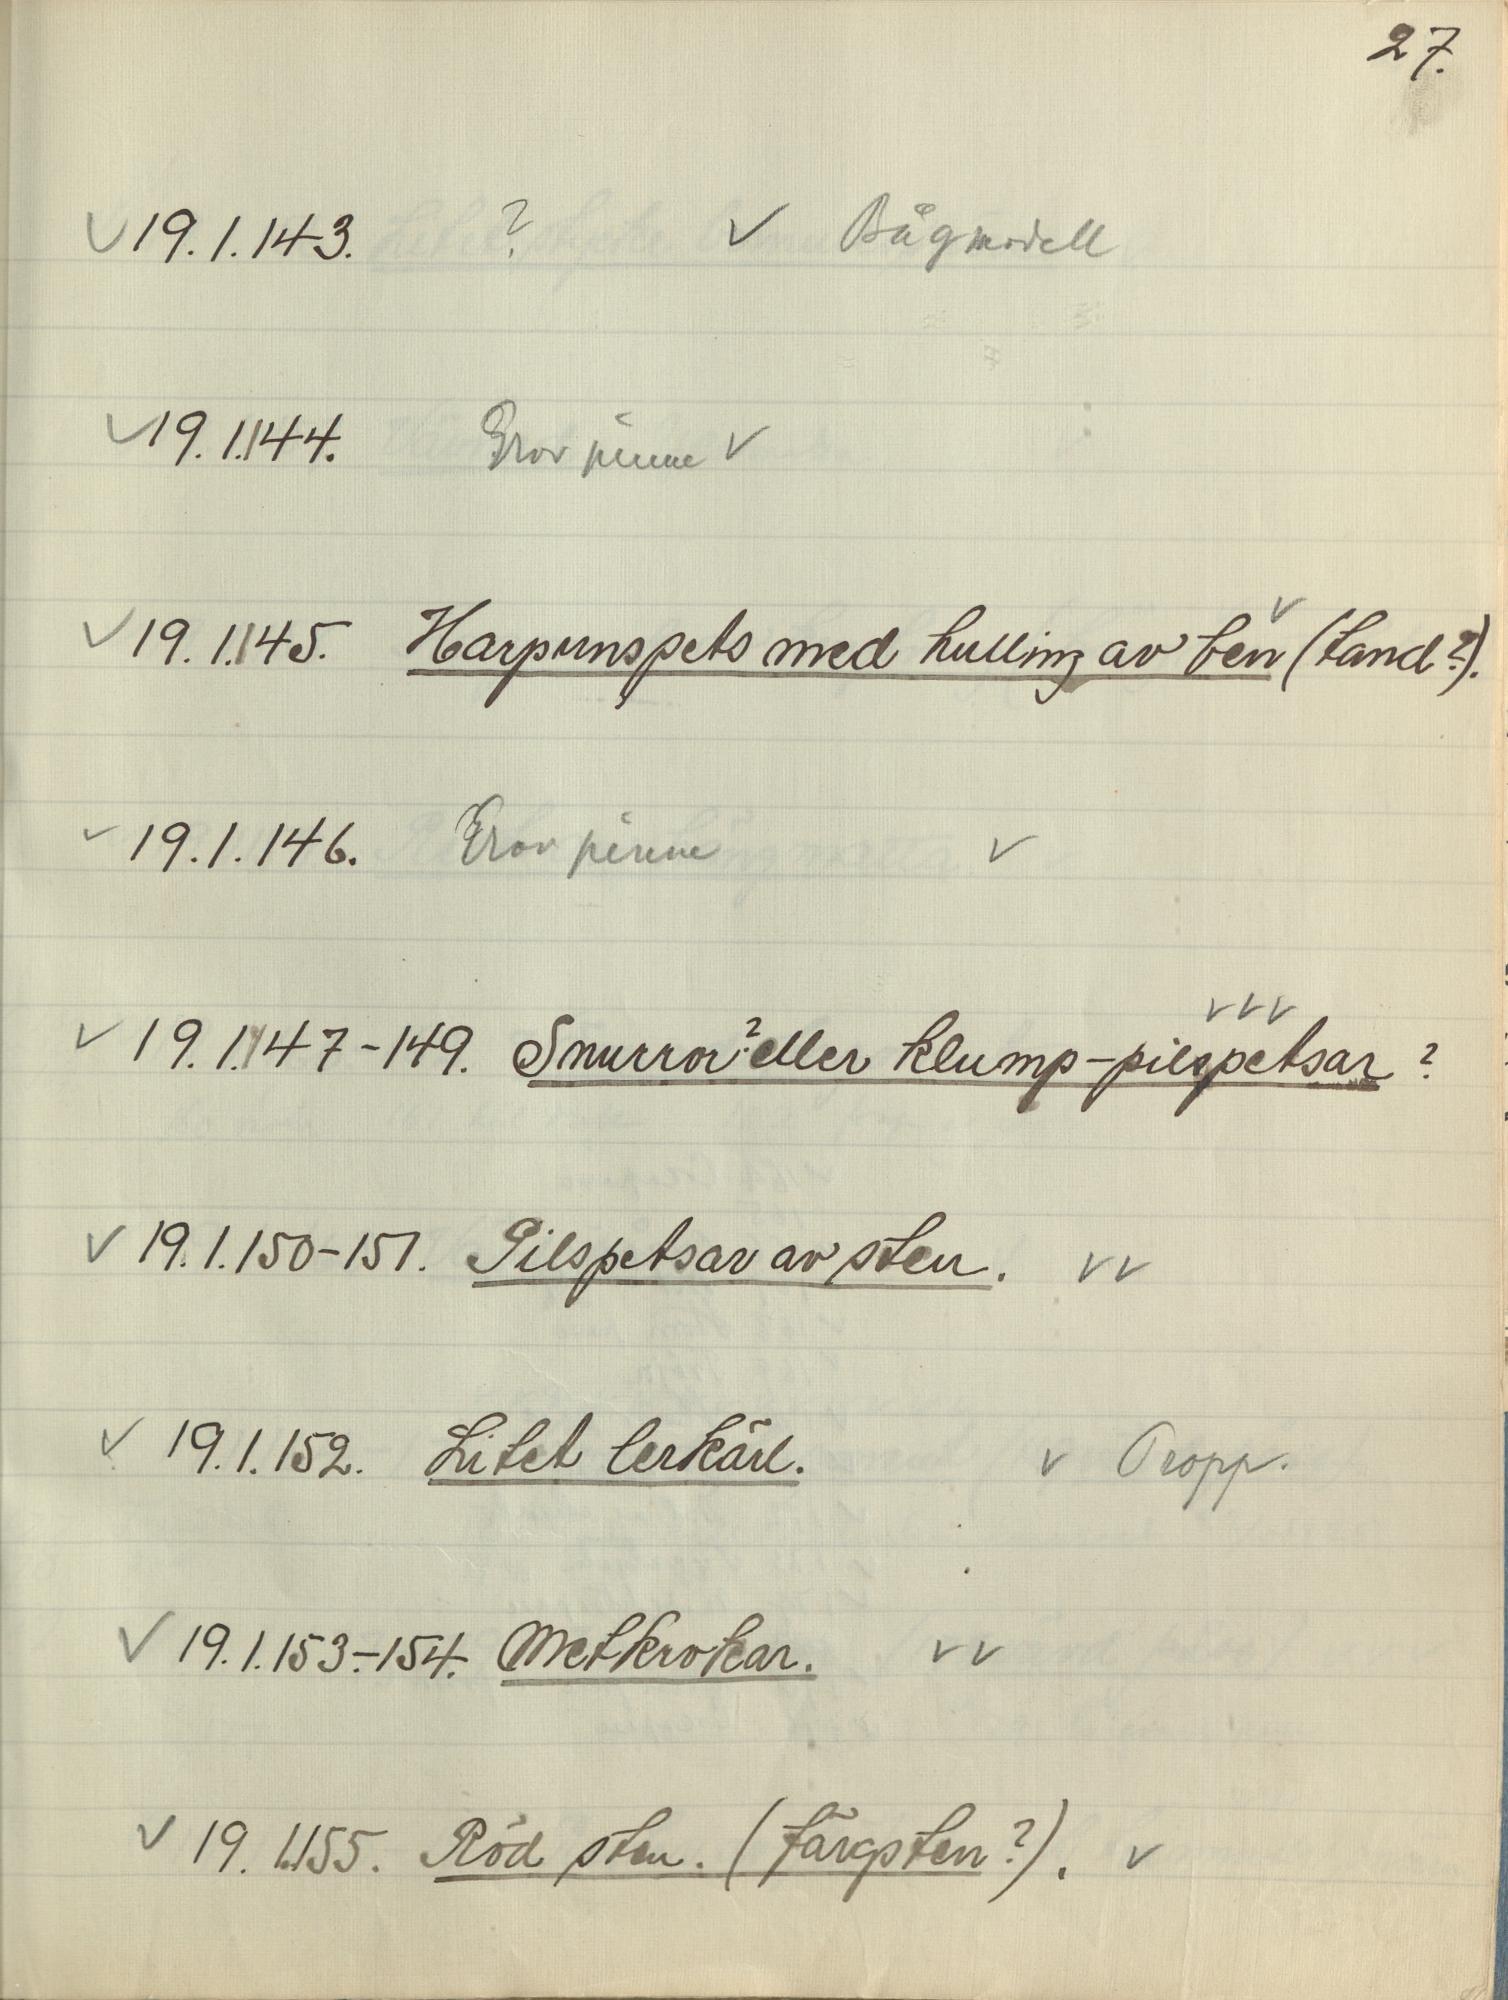 27.
✓ 19.1.143. ? ✓ Bågmodell
✓ 19.1.144. Grov pinne ✓
✓ 19.1.145. Harpunspets med hulling av ben ✓ (tand?).
✓ 19.1.146. Grov pinne ✓
✓ 19.1.147-149. Snurror? eller klump-pilspetsar ? ✓✓✓
✓ 19.1.150-151. Pilspetsar av sten. ✓✓
✓ 19.1.152. Litet lerkärl. ✓ Propp.
✓ 19.1.153-154. Metkrokar. ✓✓
✓ 19.1.155. Röd sten. (färgsten?). ✓